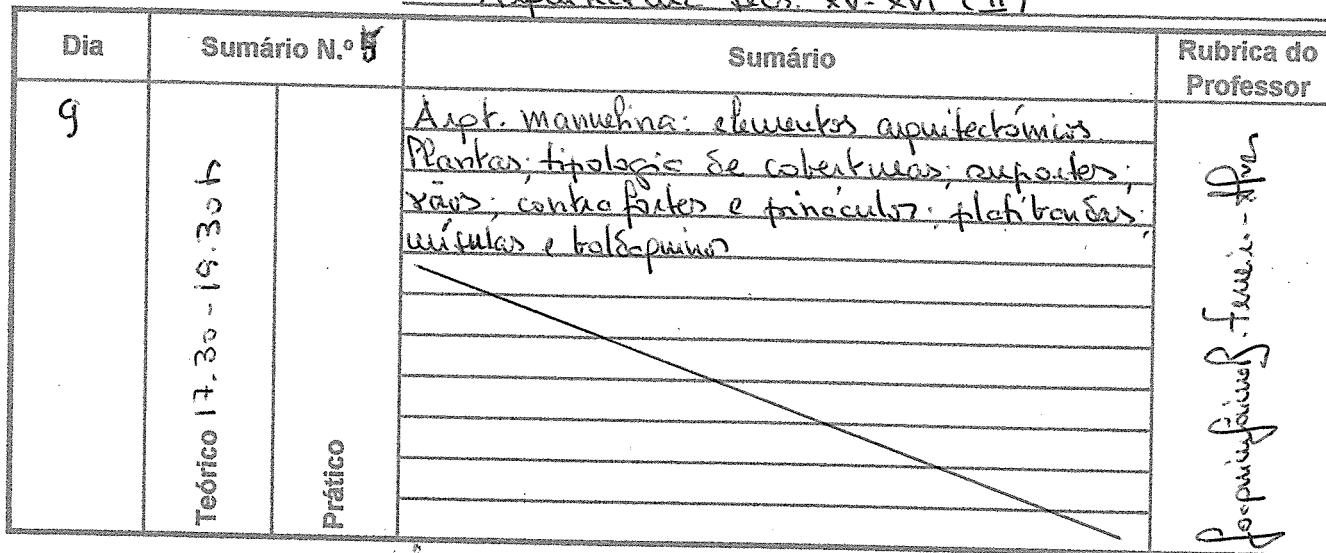 Arquitectura secs. XV-XVI (II)
Dia
Sumário N.º 5
Sumário
Rubrica do
Professor
9
Teórico 17.30-19.30h
Prático
Arqt. manuelina: elementos arquitectónicos
Plantas; tipologia de coberturas; suportes;
vãos; contrafortes e pináculos; platibandas;
mísulas e baldaquinos